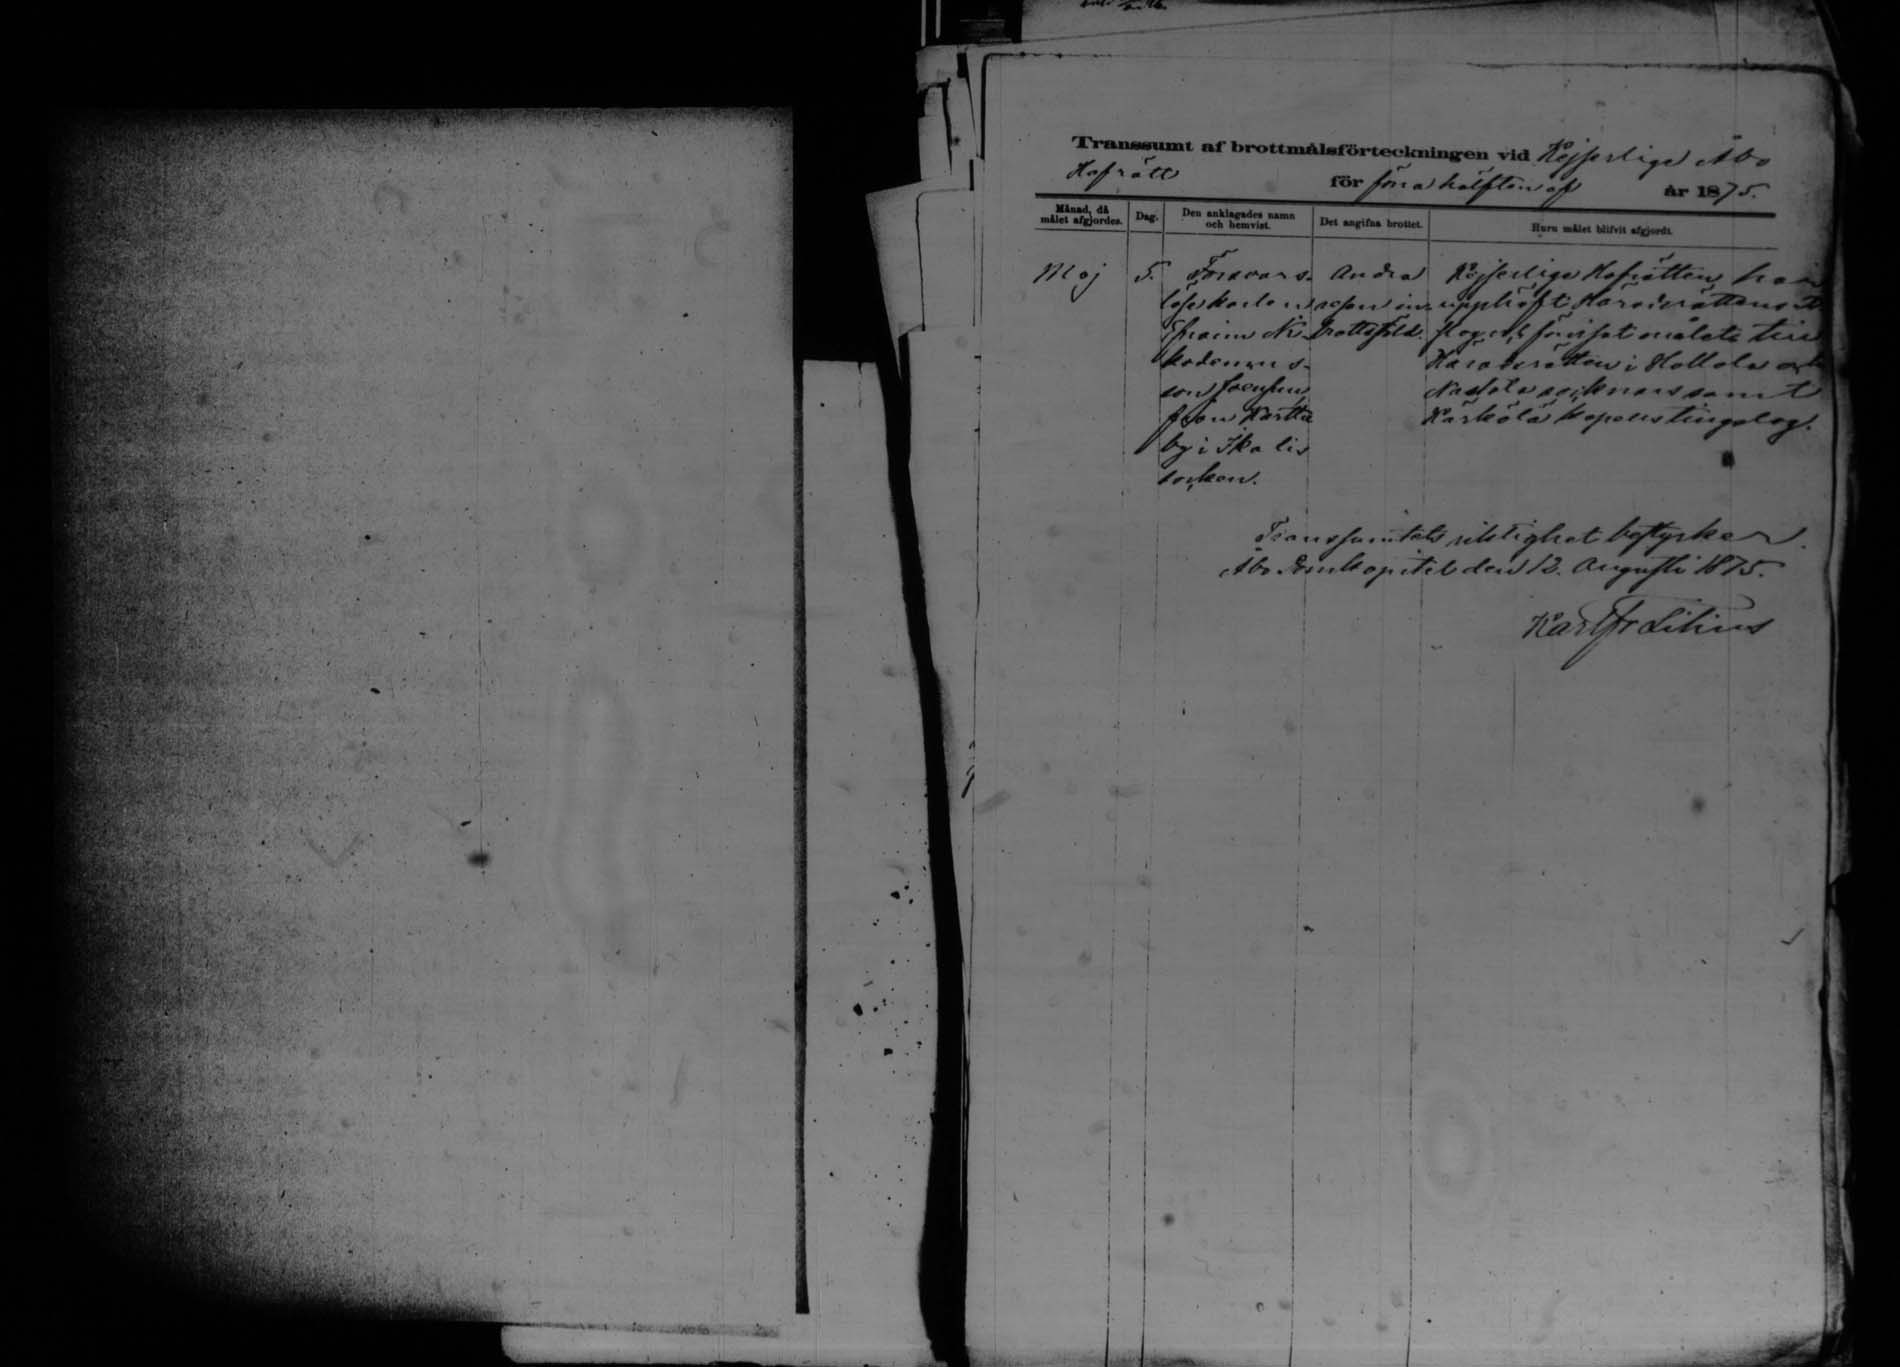 Transsumt af brottmålsförteckningen vid Kejserliga Åbo
Hofrätt för förra hälften af år 1875.
Månad, då målet afgjordes. Dag. Den anklagades namn och hemvist. Det angifna brottet. Huru målet blifvit afgjordt.
Maj 5. Försvars- Andra Kejserliga Hofrätten har
löse karlen resan in- upphäft Häradsrättens
Efraim Ni- brottsstöld. och förvisat målet till
kodemus- Häradsrätten i Hollola och
son Nastola socknars samt
från by i Ikalis Kärkölä kapells tingslag.
socken.
Transsumtets riktighet bestyrker
Åbo Domkapitel den 12. Augusti 1875.